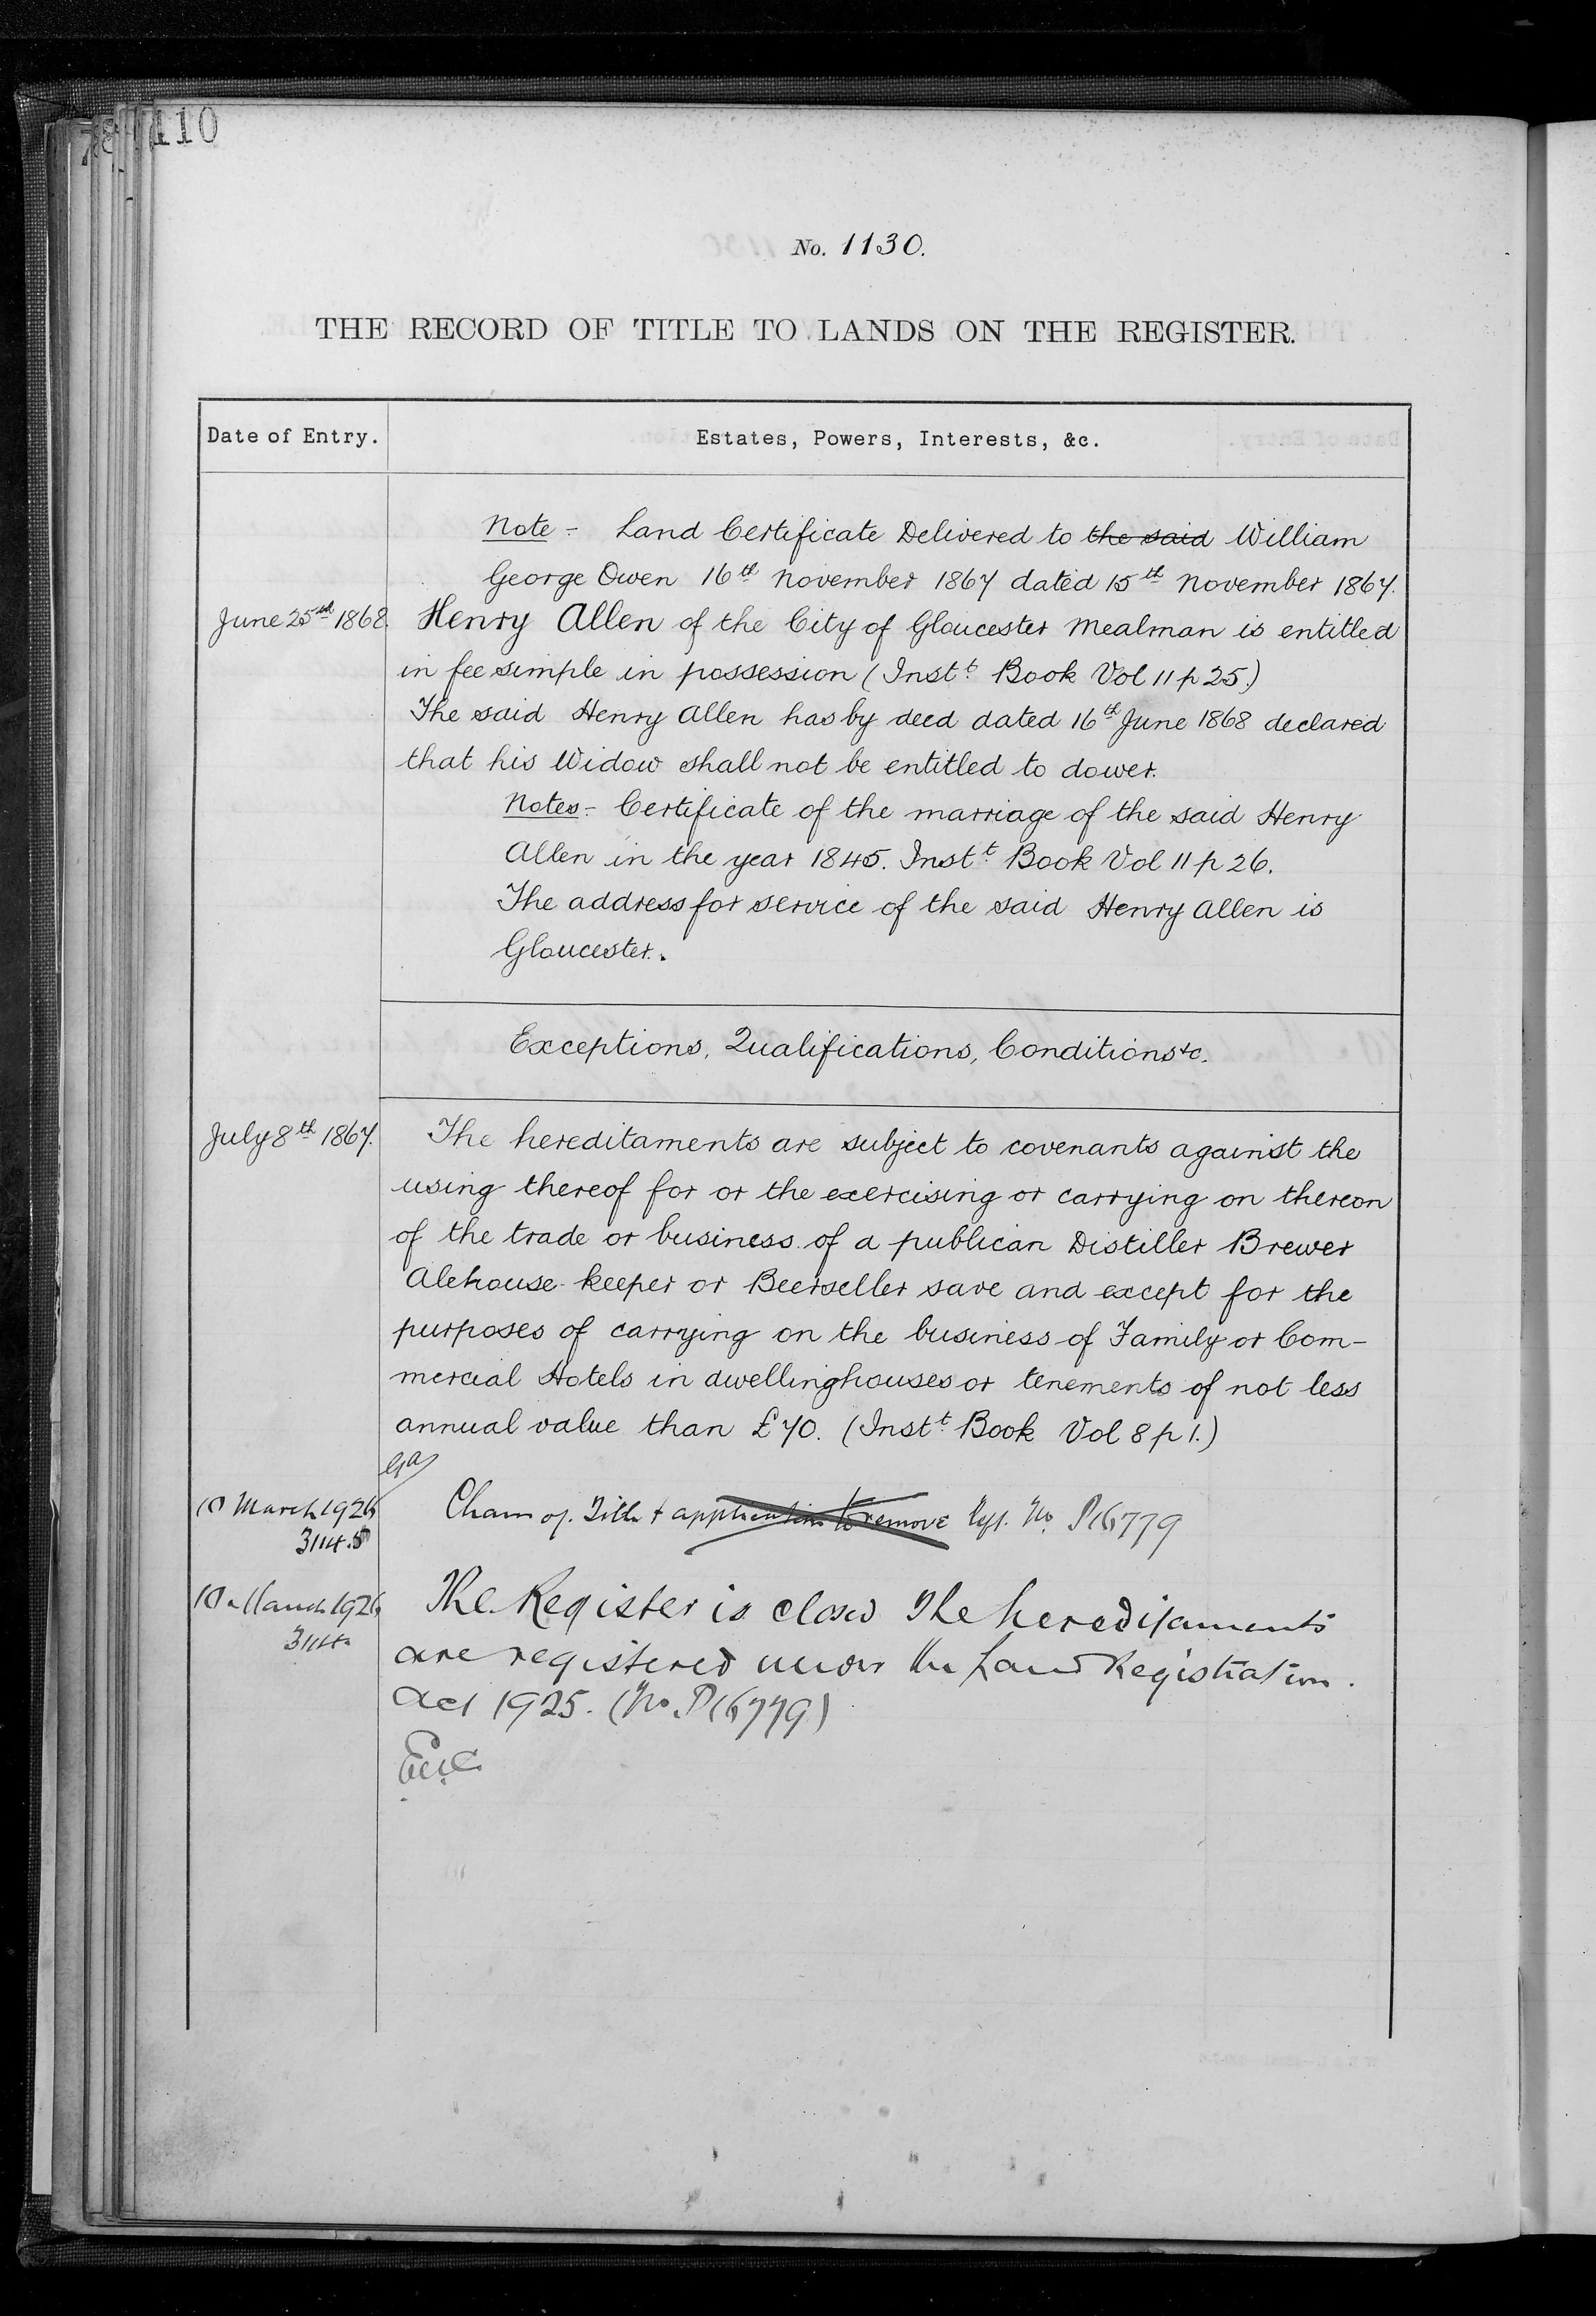 110
No. 1130.
THE RECORD OF TITLE TO LANDS ON THE REGISTER.
Date of Entry.
Estates, Powers, Interests, &c.
Note - Land Certificate Delivered to the said William
George Owen 16th November 1867 dated 15th November 1867.
June 25th 1868. Henry Allen of the City of Gloucester Mealman is entitled
in fee simple in possession (Instt. Book Vol 11 p 25.)
The said Henry Allen has by deed dated 16th June 1868 declared
that his Widow shall not be entitled to dower.
Notes - Certificate of the marriage of the said Henry
Allen in the year 1845. Instt. Book Vol 11 p 26.
The address for service of the said Henry Allen is
Gloucester.
Exceptions, Qualifications, Conditions &c.
July 8th 1867. The hereditaments are subject to covenants against the
using thereof for or the exercising or carrying on thereon
of the trade or business of a publican Distiller Brewer
Alehouse-keeper or Beerseller save and except for the
purposes of carrying on the business of Family or Com-
mercial Hotels in dwellinghouses or tenements of not less
annual value than £70. (Instt. Book Vol 8 p 1.)
10 March 1926 application to remove No. P16779
10 March 1926 The Register is closed The hereditaments
are registered under the Land Registration
Act 1925. (No. P16779)